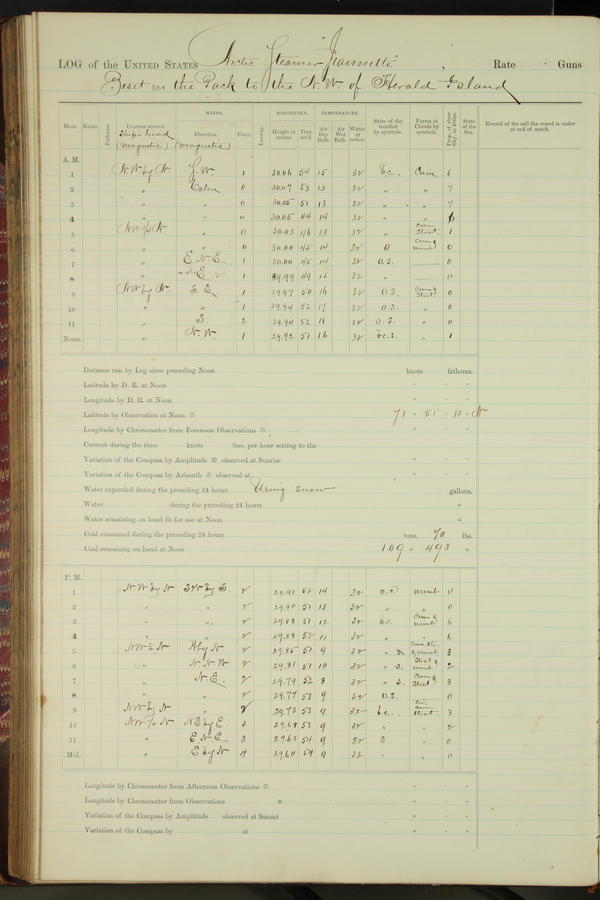 LOG of the UNITED STATES Arctic Steamer "Jeannette", Rate Guns
Beset in the Pack to the N. W. of Herald Island
WINDS. BAROMETER. TEMPERATURE.
Hour. Knots. Fathoms. Courses steered. Direction. Force. Leeway. Height in inches. Ther. att'd. Air Dry Bulb. Air Wet Bulb. Water at surface. State of the weather by symbols. Forms of Clouds by symbols. Prop. of clear Sky, in 10ths. State of the Sea. Record of the sail the vessel is under at end of watch.
Ship's head (magnetic) (magnetic)
A. M.
1 N. W. by N. S. W. 1 30.06 54 15 32 bc. Cum 6
2 " Calm 0 30.07 53 13 32 " " 7
3 " " 0 30.05 51 13 32 " " 7
4 " " 0 30.05 44 14 32 " " 6
5 " 0 30.03 46 13 32 " Cum Strat. 1
6 " " 0 30.00 45 14 32 0 Cum & nimb 0
7 " E. N. E. 1 30.00 45 14 32 O. S. 0
8 " E. 1 29.99 49 15 32 " 0
9 N W by N. S. E. 1 29.97 50 16 32 O. S. Cum & Strat. 0
10 " " 1 29.94 52 17 32 O. S. " 0
11 " S. 2 29.94 52 18 32 O. S. " 0
Noon. " N. W. 1 29.92 51 16 32 bc. s. " 1
Distance run by Log since preceding Noon knots fathoms.
Latitude by D. R. at Noon " " "
Longitude by D. R. at Noon " " "
Latitude by Observation at Noon 71 " 51 " 10 " N
Longitude by Chronometer from Forenoon Observations " " "
Current during the time knots fms. per hour setting to the
Variation of the Compass by Amplitude observed at Sunrise " " "
Variation of the Compass by Azimuth observed at " " "
Water expended during the preceding 24 hours Using snow gallons.
Water during the preceding 24 hours "
Water remaining on hand fit for use at Noon "
Coal consumed during the preceding 24 hours tons. 70 lbs.
Coal remaining on hand at Noon 109 " 493 "
P. M.
1 N. W by N S W by S. 2 29.91 52 14 32 nimb 0
2 " " 2 29.90 51 13 32 " " 0
3 " " 2 29.88 51 12 32 bc Cum & nimb 6
4 " " 2 29.88 52 11 32 " " 6
5 W by N 2 29.85 51 9 32 " & nimb 3
6 " N. N. W 2 29.81 51 10 32 " S. Strat & nimb 2
7 " N. E. 2 29.79 52 8 32 " S. Cum & Strat 3
8 " " 2 29.77 53 9 32 O. S. 0
9 N W by N " 2 29.73 53 9 32 bc. Strat. 3
10 N E by E. 3 29.68 53 9 32 " " 2
11 " E N E 3 29.63 54 9 32 " 0
Mid. " E by N 4 29.60 54 9 32 " " 0
Longitude by Chronometer from Afternoon Observations " " "
Longitude by Chronometer from Observations " " "
Variation of the Compass by Amplitude observed at Sunset " " "
Variation of the Compass by at " " "